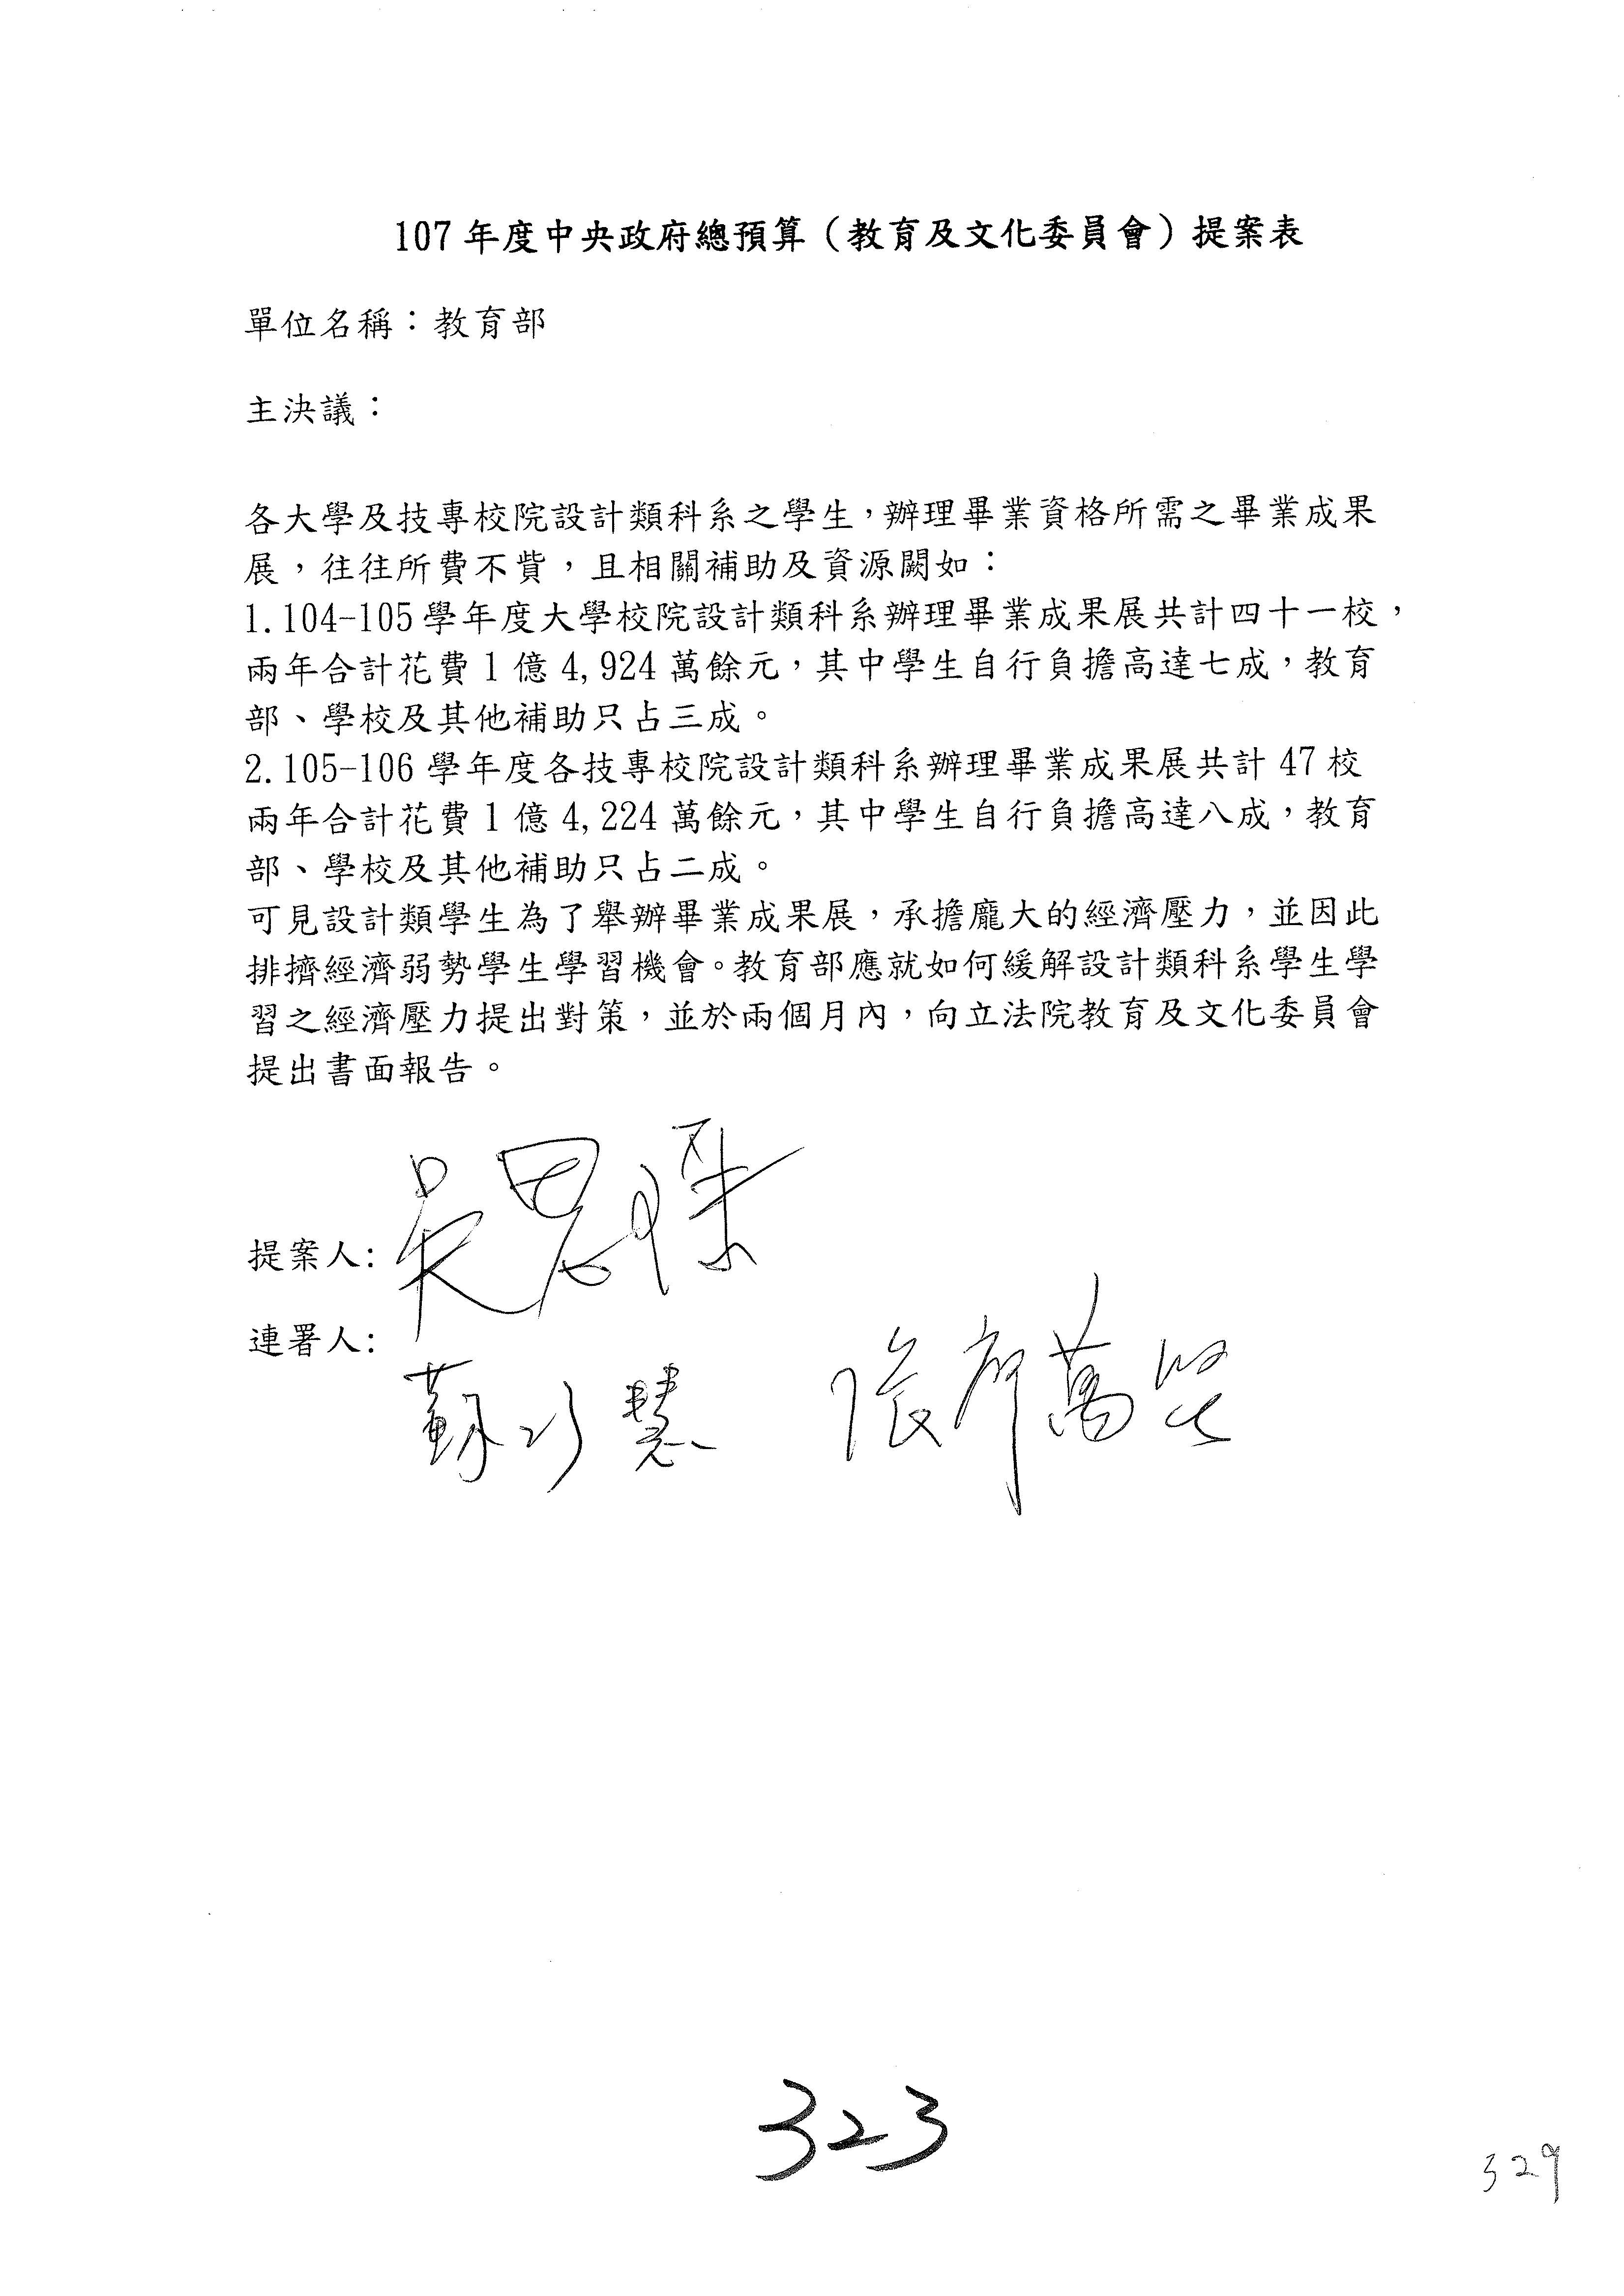 107年度中央政府總預算（教育及文化委員會）提案表
單位名稱：教育部
主決議：
各大學及技專校院設計類科系之學生，辦理畢業資格所需之畢業成果
展，往往所費不貲，且相關補助及資源闕如：
1.104-105學年度大學校院設計類科系辦理畢業成果展共計四十一校，
兩年合計花費1億4,924萬餘元，其中學生自行負擔高達七成，教育
部、學校及其他補助只占三成。
2.105-106學年度各技專校院設計類科系辦理畢業成果展共計47校
兩年合計花費1億4,224萬餘元，其中學生自行負擔高達八成，教育
部、學校及其他補助只占二成。
可見設計類學生為了舉辦畢業成果展，承擔龐大的經濟壓力，並因此
排擠經濟弱勢學生學習機會。教育部應就如何緩解設計類科系學生學
習之經濟壓力提出對策，並於兩個月內，向立法院教育及文化委員會
提出書面報告。
提案人: 吳思瑤
連署人:
蘇巧慧 張廖萬堅
323
329